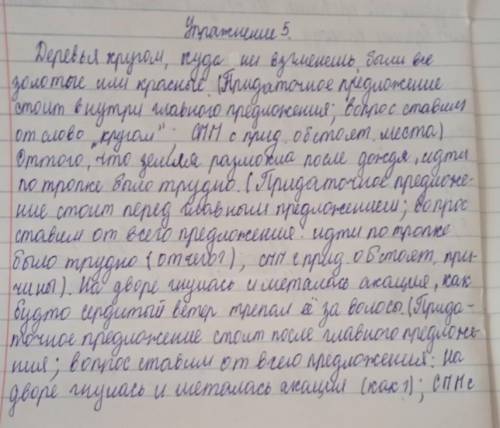 Упражнение 5.
Деревья кругом, куда ни взгленешь, были все
золотые или красные. (Придаточное предложение
стоит внутри главного предложения; вопрос ставим
от слово "кругом"; СПП с прид. обстоят. места)
Оттого, что земля размокла после дождя, идти
по тропке было трудно. (Придаточное предложе-
ние стоит перед главным предложением; вопрос
ставим от всего предложение: идти по тропке
было трудно (отчего?), СПП с прид обстоят, при-
чины). На дворе гнулась и металась акация, как
будто сердитый ветер трепал её за волосы. (Прида-
точное предложение стоит после главного предложе-
ния; вопрос ставим от всего предложения: На
дворе гнулась и металась акация (как?); СПП с